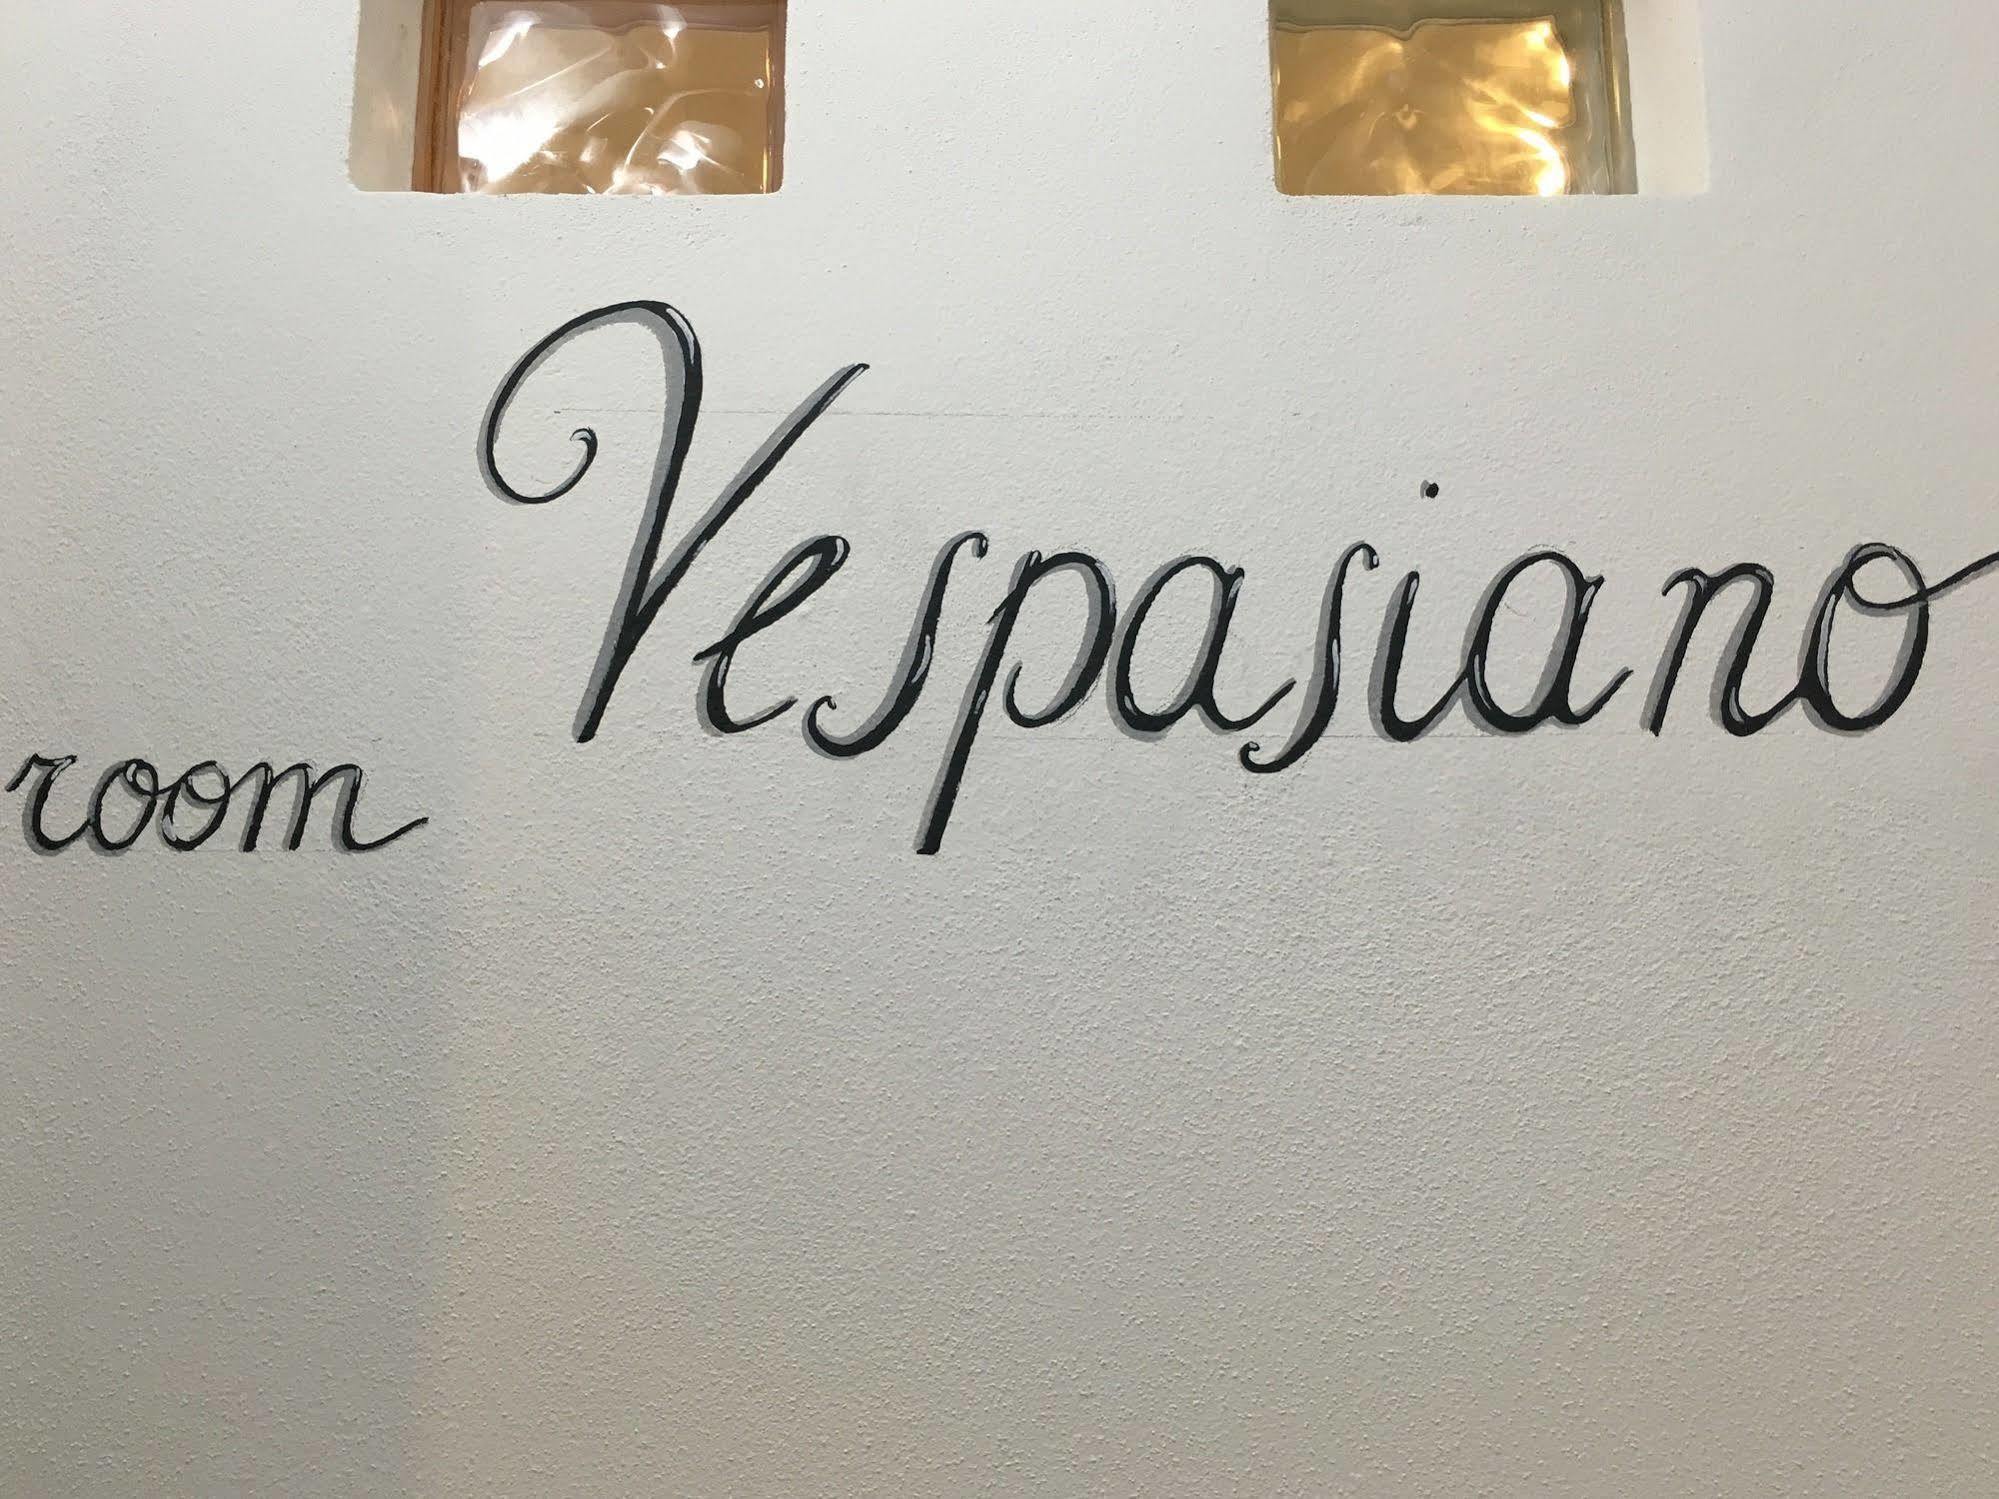 room Vespasiano